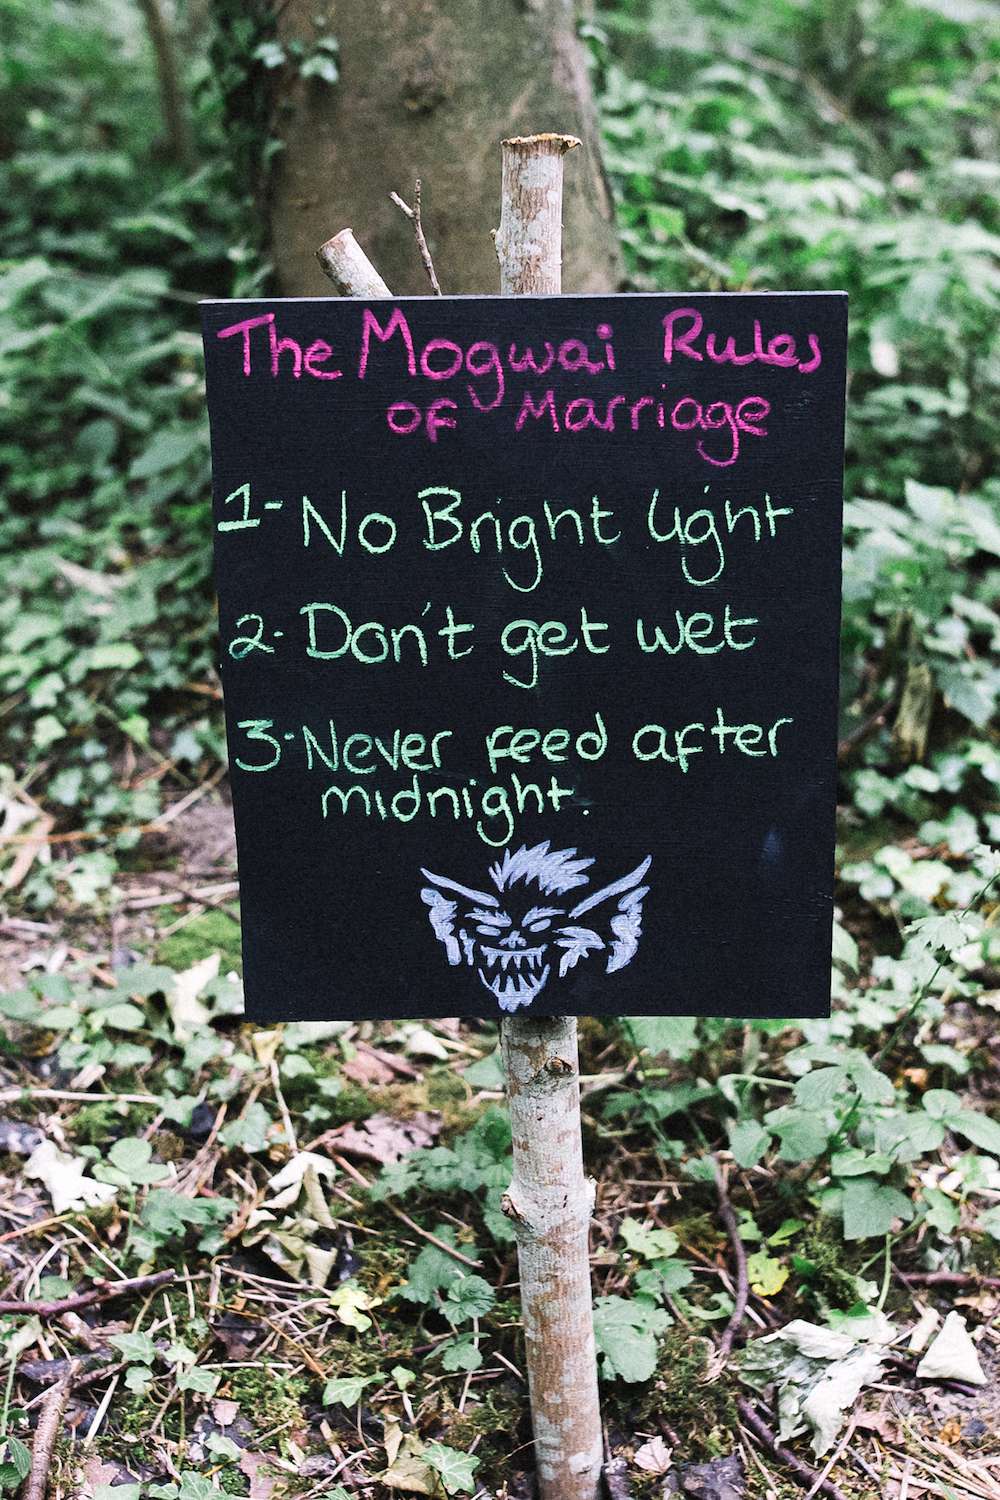 The Mogwai Rules
of Marriage
1- No Bright light
2- Don't get wet
3- Never feed after
midnight.